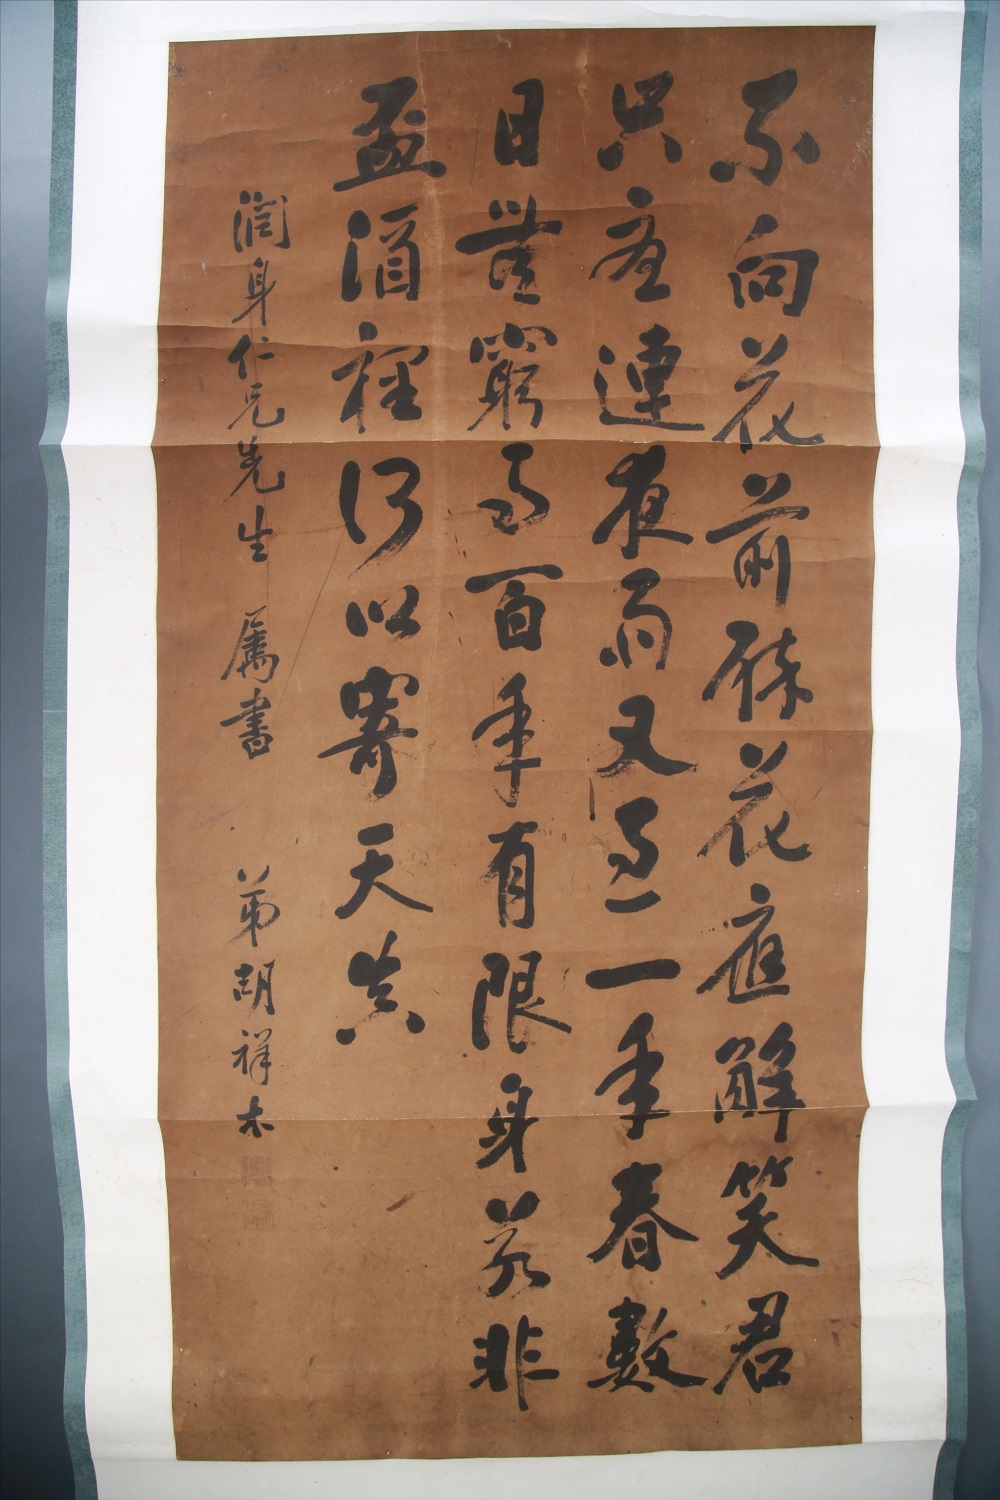 不向花前醉花應解笑君
只連夜雨又過一年春數
日無窮事百年有限身若非
盃酒裡何以寄天真
潤身仁兄先生 屬書
弟胡祥木